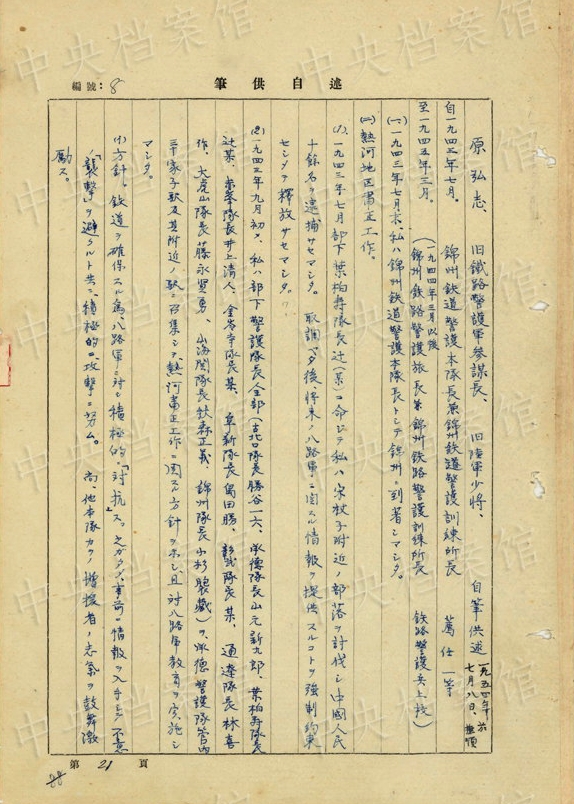 述自供筆
編號：8
原弘志、 旧鐵路警護軍参謀長、 旧陸軍少将、 自筆供述 一九五四年七月八日、於撫順
自一九四三年七月、 錦州鉄道警護本隊長兼錦州鉄道警護訓練所長 薦任一等
至一九四五年三月、 (一九四四年三月以後 錦州鉄路警護旅長兼錦州鉄路警護訓練所長 鉄路警護兵上校)
(一)、一九四三年七月末、私ハ錦州鉄道警護本隊長トシテ錦州ニ到著シマシタ。
(二)熱河地区粛正工作。
(1)、一九四三年七月部下葉柏寿隊長辻(某)ニ命ジテ私ハ宋杖子附近ノ部落ヲ討伐シ中國人民
十餘名ヲ逮捕サセマシタ。取調ベタ後、将来ノ八路軍ニ関スル情報ヲ提供スルコトヲ強制約束
セシメテ釋放サセマシタ。
(2)一九四三年九月初メ、私ハ部下警護隊長全部(古北口隊長勝谷一六、承徳隊長山元新九郎、葉柏寿隊長
辻某、赤峯隊長井上清人、金嶺寺隊長某、阜新隊長島田勝、彰武隊長某、通遼隊長林喜
作、大虎山隊長藤永賢勇、山海関隊長秋森正義、錦州隊長小杉聰藏)ヲ承徳警護隊管内
三家子駅及其附近ノ駅ニ召集シテ、熱河粛正工作ニ関スル方針ヲ示シ且対八路軍教育ヲ実施シ
マシタ。
(イ)方針。鉄道ヲ確保スル為、八路軍ニ対シ積極的ニ「対抗」ス。之ガタメ、事前ニ情報ヲ入手シテ不意
ノ「襲撃」ヲ避クルト共ニ、積極的ニ攻撃ニ努ム。尚、他本隊カラノ増援者ノ志氣ヲ鼓舞激
励ス。
第21頁
中央档案馆